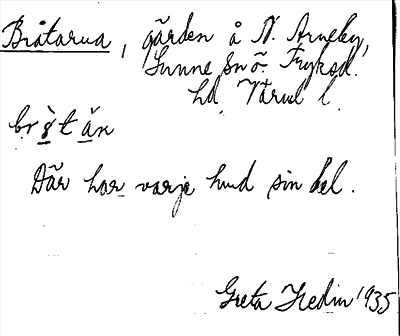 Bråtarna, gärden å N. Arneby,
Sunne sn ö. Fryksd.
hd Värml l.
br t än
Där har varje hud sin del.
Greta Hedin 1935